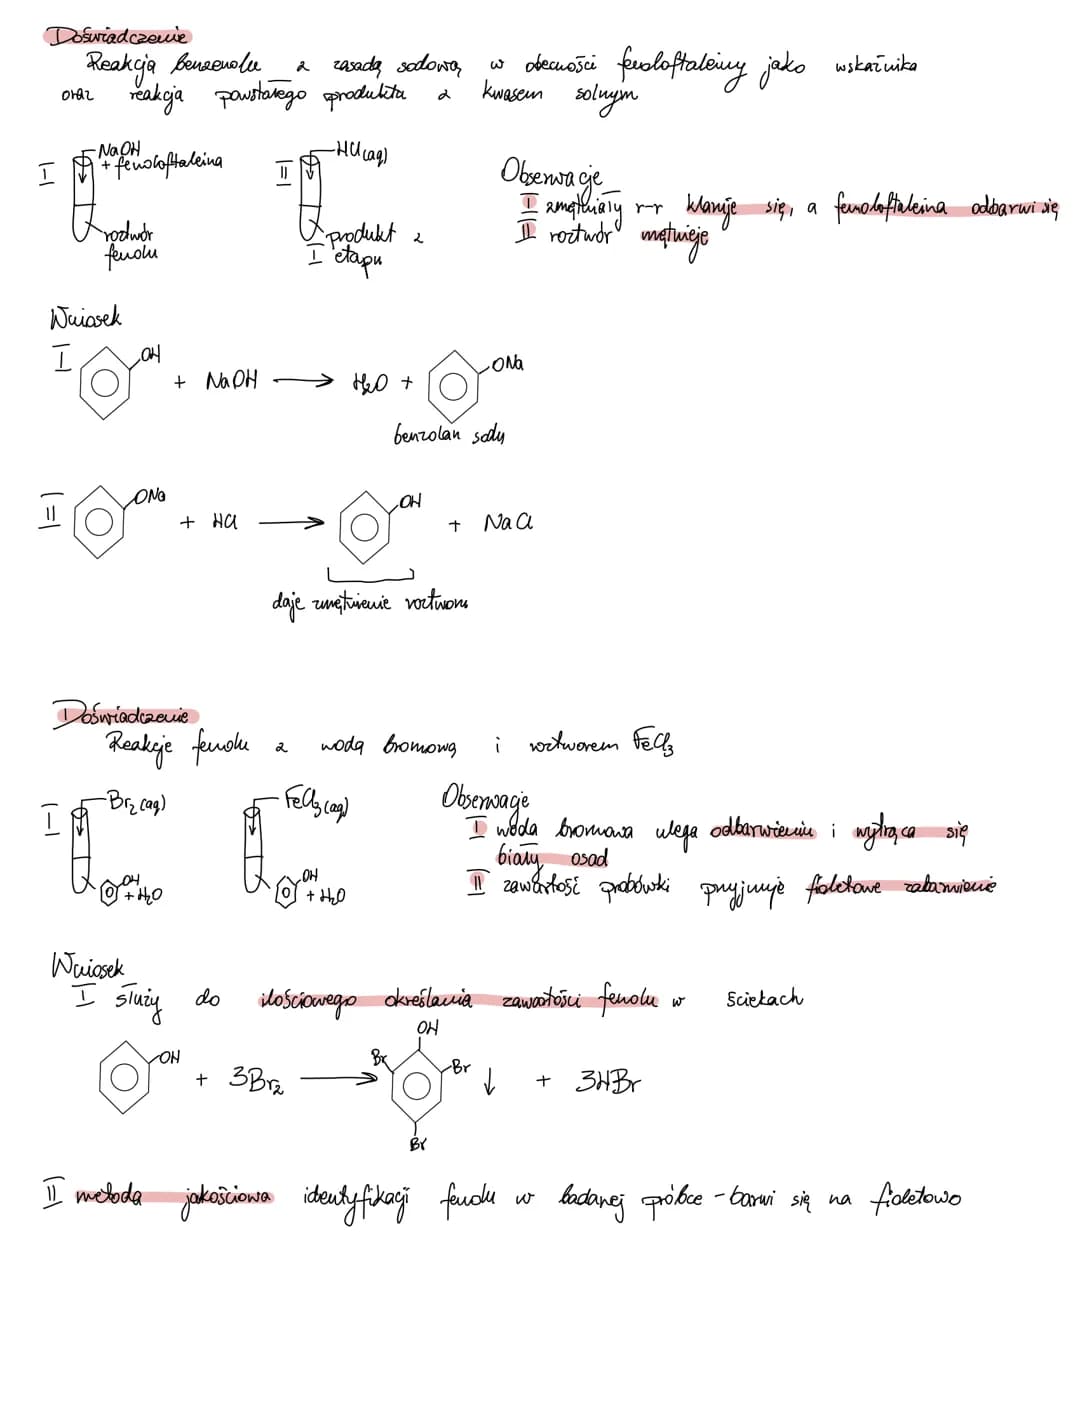 Doświadczenie
Reakcja benzenolu z zasadą sodową w obecności fenoloftaleiny jako wskaźnika
oraz reakcja powstałego produktu z kwasem solnym
I NaOH + fenoloftaleina
roztwór fenolu
II HCl(aq)
produkt z I etapu
Obserwacje
I zmętniały r-r klaruje się, a fenoloftaleina odbarwi się
II roztwór mętnieje
Wniosek
I OH + NaOH → H₂O + ONa
benzolan sodu
II ONa + HCl → OH + NaCl
daje zmętnienie roztworu
Doświadczenie
Reakcje fenolu z wodą bromową i roztworem FeCl₃
I Br₂(aq)
OH + H₂O
FeCl₃(aq)
OH + H₂O
Obserwacje
I woda bromowa ulega odbarwieniu i wytrąca się
biały osad
II zawartość probówki przyjmuje fioletowe zabarwienie
Wniosek
I służy do ilościowego określania zawartości fenolu w ściekach
OH + 3Br₂ → OH Br Br Br ↓ + 3HBr
II metoda jakościowa identyfikacji fenolu w badanej próbce - barwi się na fioletowo